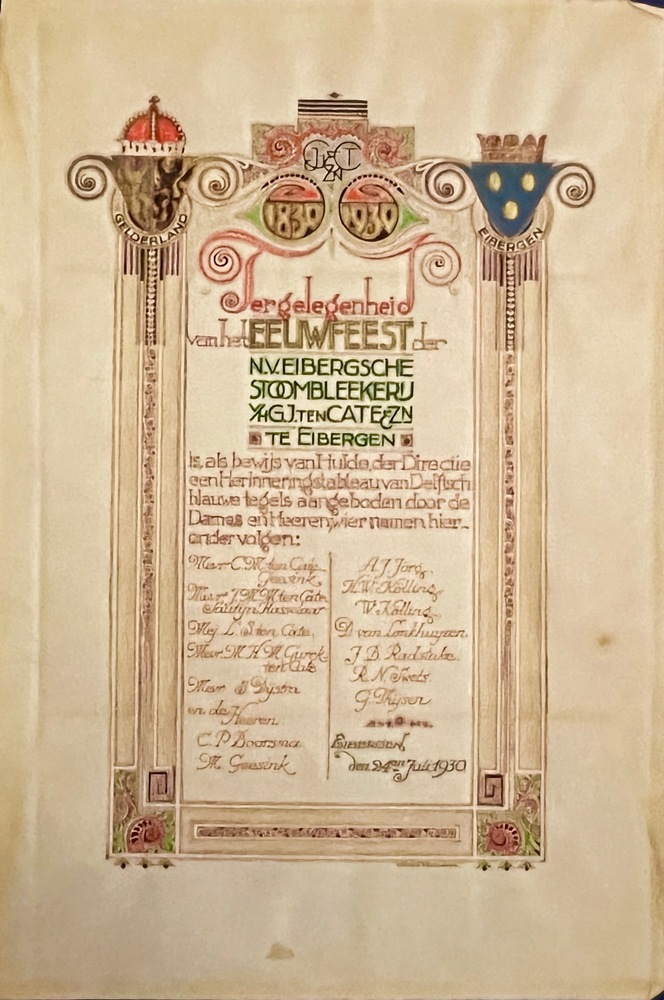 GELDERLAND
EIBERGEN
1830 1930
Tergelegenheid
van het EEUWFEEST der
N.V. EIBERGSCHE
STOOMBLEEKERIJ
V/H G.J. TEN CATE & ZN
TE EIBERGEN
is, als bewijs van Hulde, der Directie
een Herinneringstableau van Delftsch
blauwe tegels aangeboden door de
Dames en Heeren, wier namen hier-
ondervolgen:
Mevr C. M. ten Cate
Geesink
Mevr J. M. M. ten Cate
Hasselaar
Mej. L. S. ten Cate
Mevr. M. H. M.
ten Cate
Mevr S Dijstra
en de
Heeren
C. P. Doorsma
M. Geesink
A J Jorg
H. W. Kolling
W. Kolling
D. van Lonkhuyzen
J. B. Radstake
R. N. Swets
G. Thijsen
EIBERGEN
den 24en Juli 1930